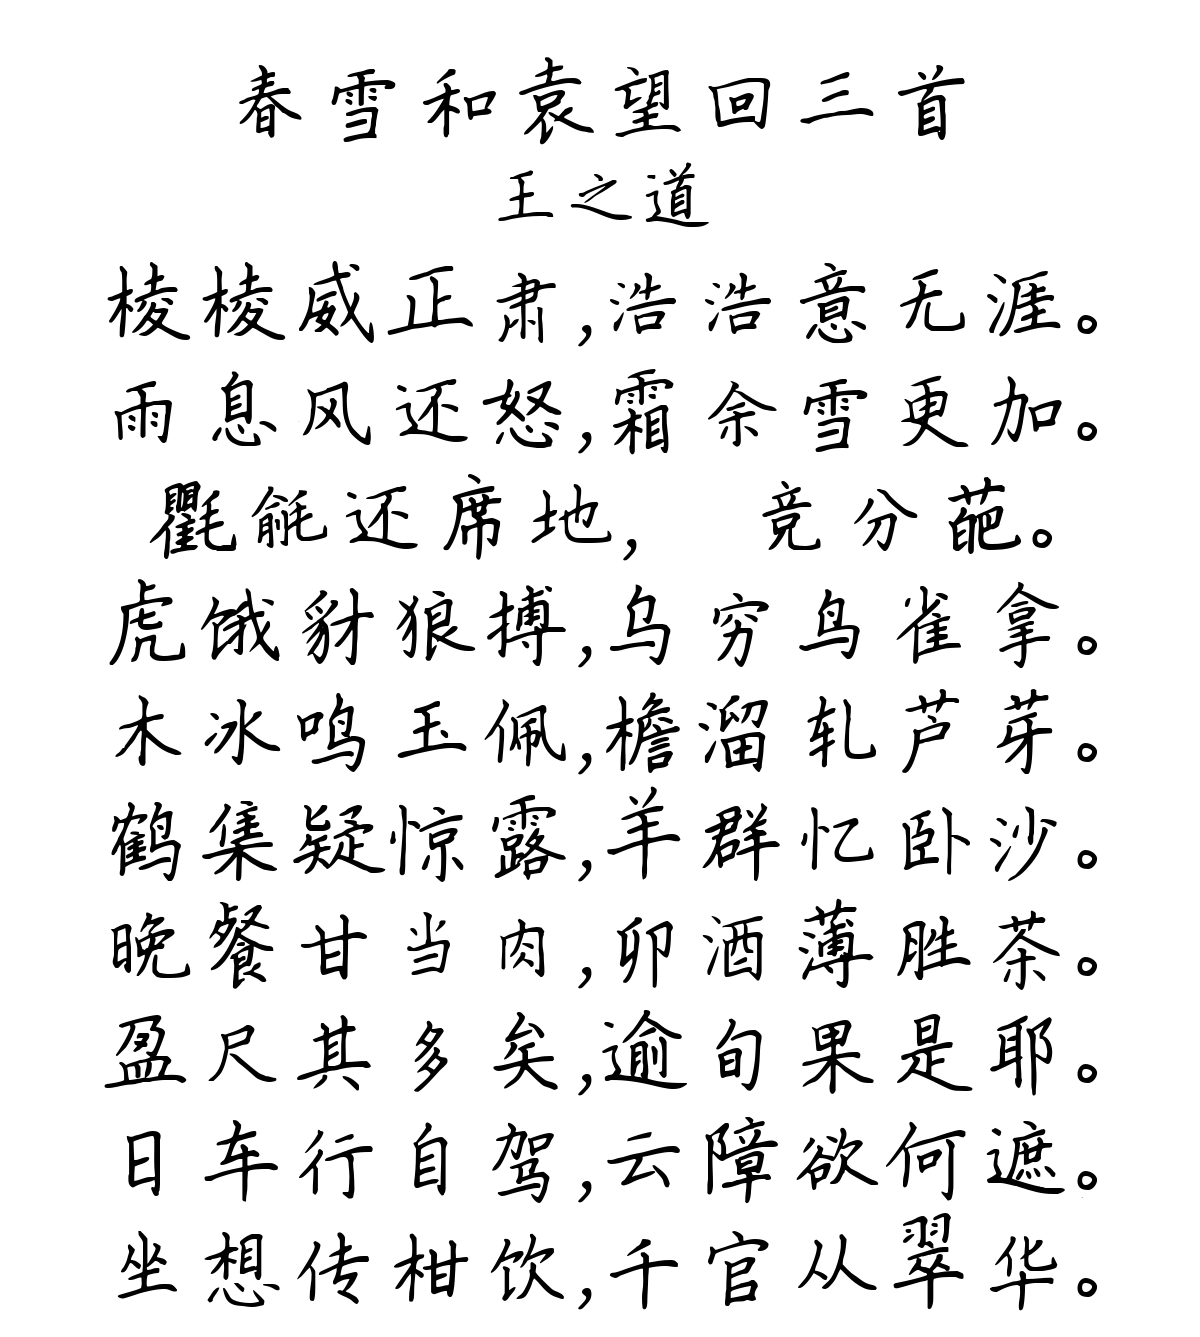 春雪和袁望回三首
王之道
棱棱威正肃,浩浩意无涯。
雨息风还怒,霜余雪更加。
氍毹还席地, 竞分葩。
虎饿豺狼搏,乌穷鸟雀拿。
木冰鸣玉佩,檐溜轧芦芽。
鹤集疑惊露,羊群忆卧沙。
晚餐甘当肉,卯酒薄胜茶。
盈尺其多矣,逾旬果是耶。
日车行自驾,云障欲何遮。
坐想传柑饮,千官从翠华。